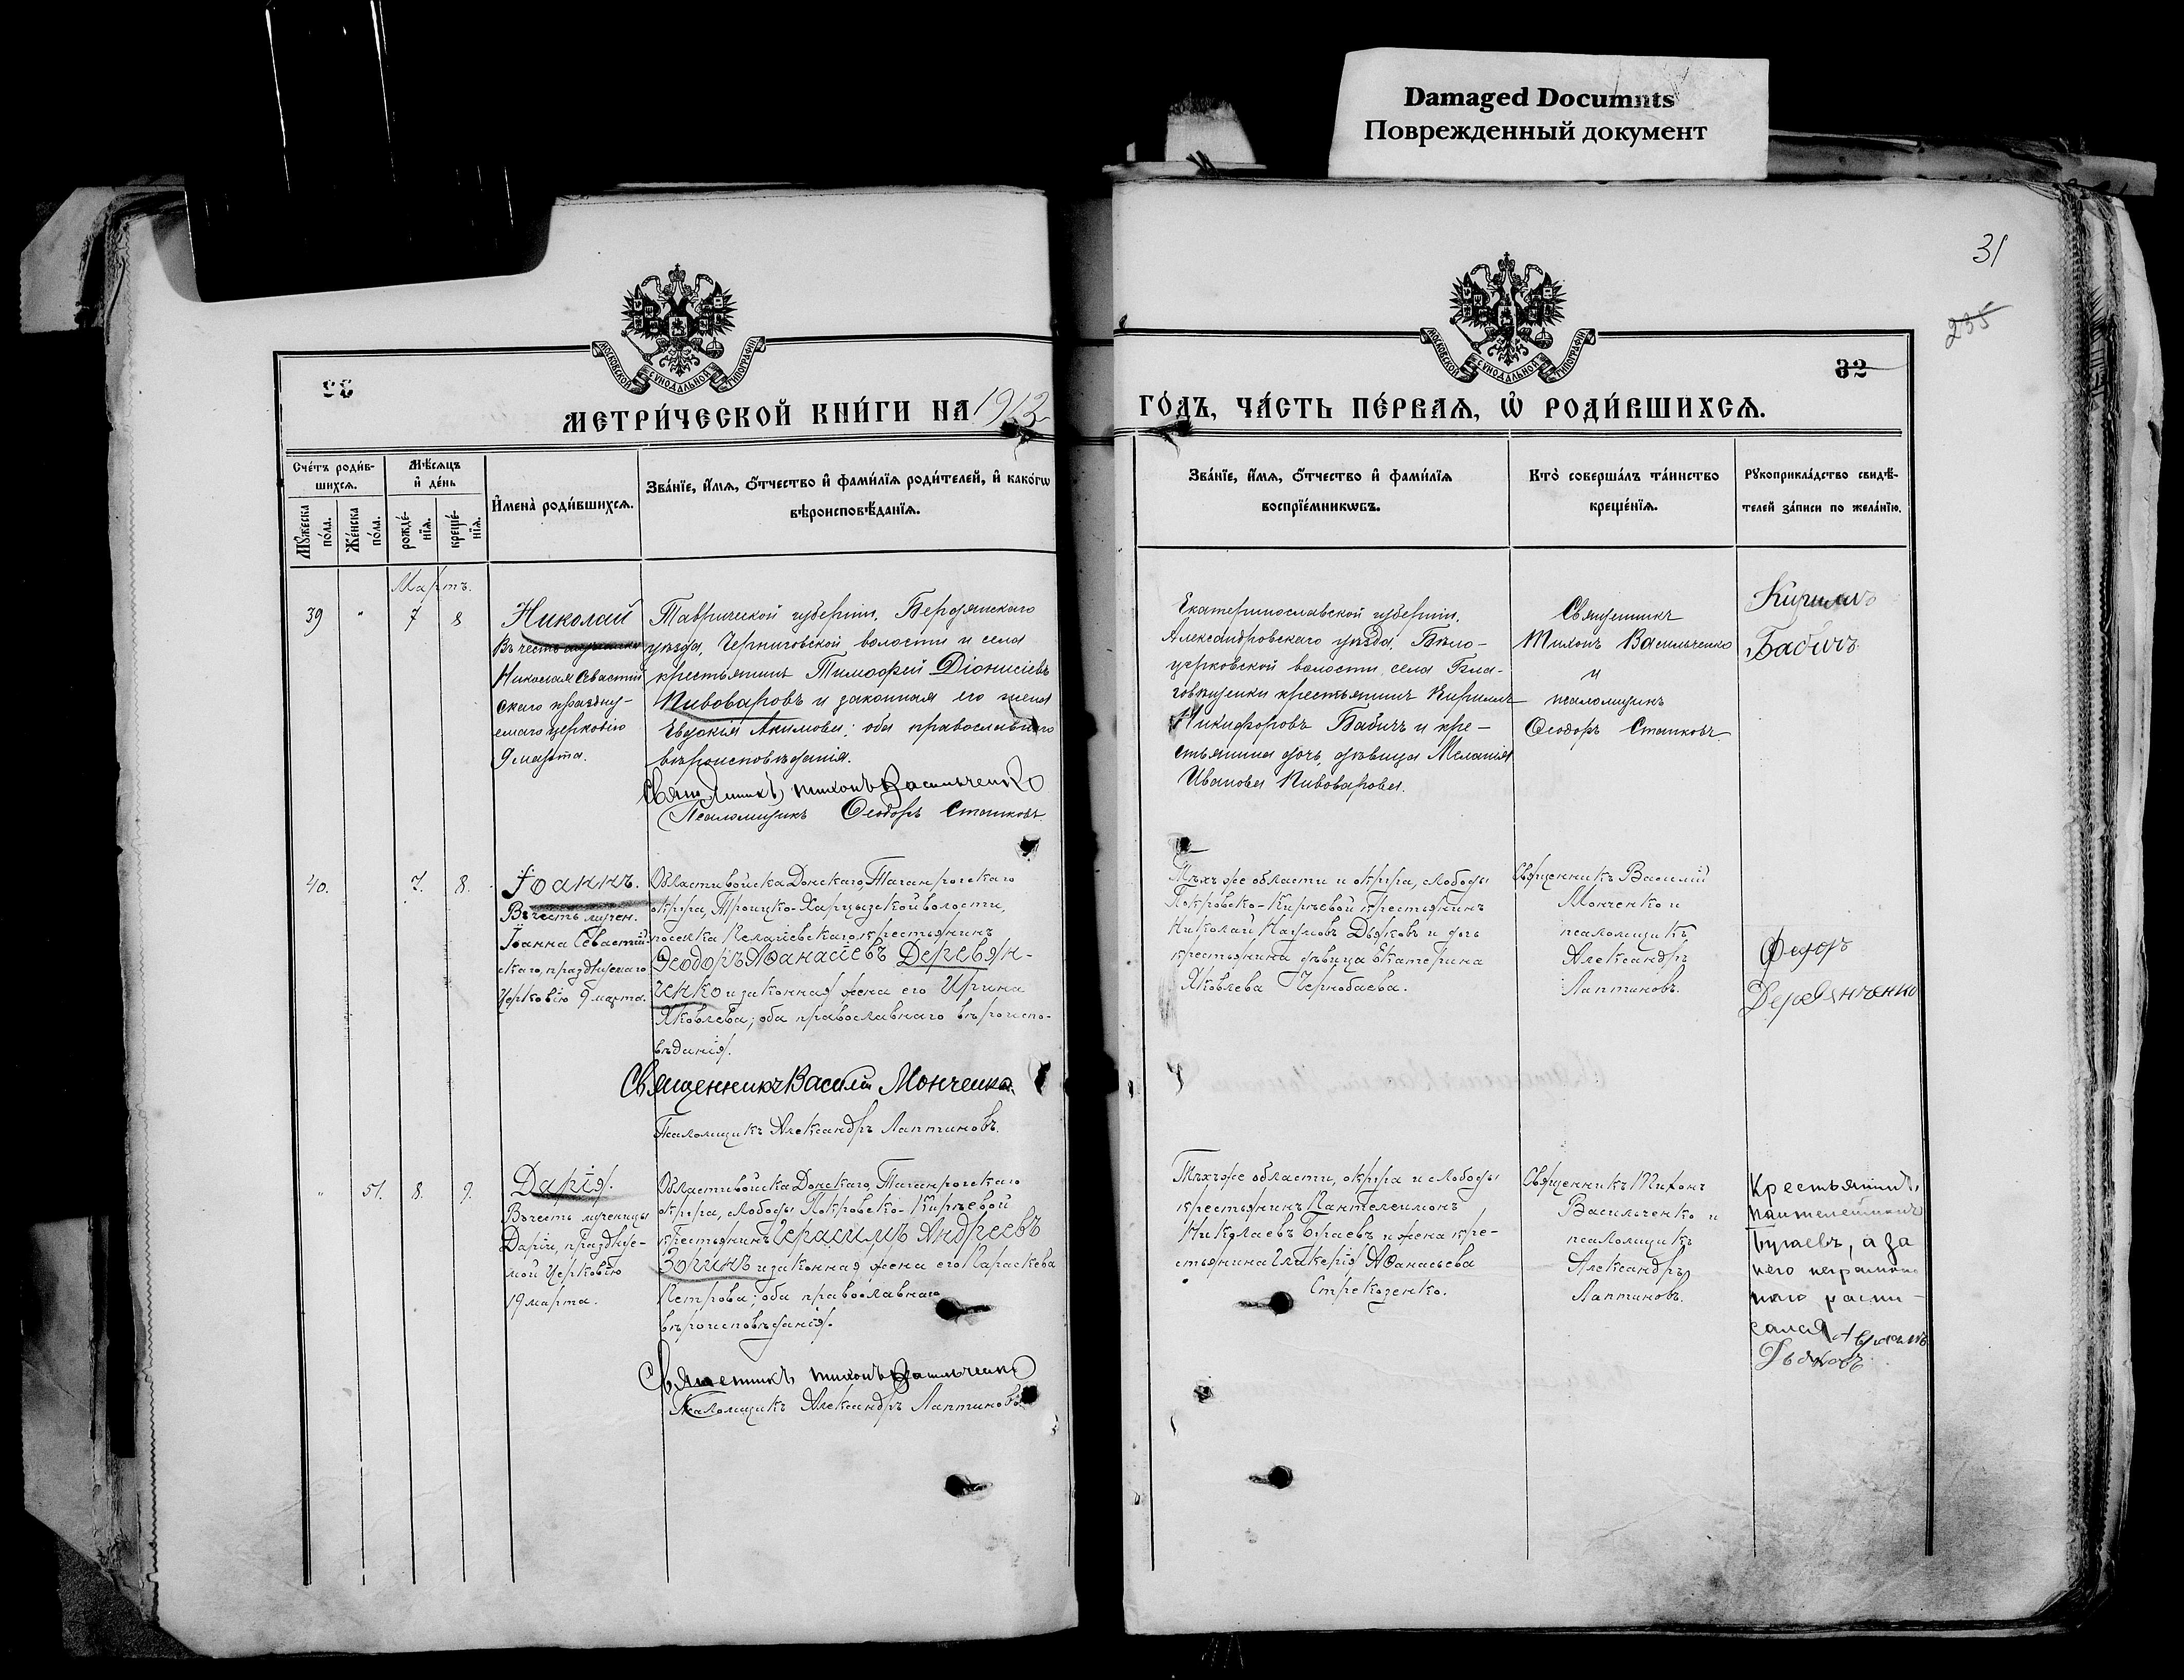 Damaged Documnts
Поврежденный документ
31
235
32
МОСКОВСКОЙ СѴНОДАЛЬНОЙ ТИПОГРАФІИ
МОСКОВСКОЙ СѴНОДАЛЬНОЙ ТИПОГРАФІИ
МЕТРИ́ЧЕСКОЙ КНИ́ГИ НА 1913
ГО́ДЪ, ЧА́СТЬ ПЕ́РВАЯ, Ѡ҆ РОДИ́ВШИХСЯ.
Сче́тъ роди́в-
шихся.
Мꙋ́жеска
по́ла.
Же́нска
по́ла.
Мѣ́сяцъ
и҆ де́нь
рожде́-
нїя.
креще́-
нїя.
И҆мена̀ роди́вшихся.
Зва́нїе, и҆́мя, ѻ҆́тчество и҆ фами́лїя роди́телей, и҆ како́гѡ
вѣроисповѣ́данїя.
Зва́нїе, и҆́мя, ѻ҆́тчество и҆ фами́лїя
воспрїе́мникѡвъ.
Кто̀ соверша́лъ та́инство
креще́нїя.
Рꙋкоприкла́дство свидѣ́-
телей за́писи по жела́нїю.
Мартъ.
39 " 7 8
Николай
Въ честь мученика
Николая Севастій
скаго праздну-
емаго церковію
9 марта.
Таврической губерніи, Бердянскаго
уѣзда, Черниговской волости и села
крестьянинъ Тимофей Діонисіевъ
Пивоваровъ и законная его жена
Евдокія Акимова; оба православнаго
вѣроисповѣданія.
Священникъ Тихонъ Васильченко
Псаломщикъ Ѳеодоръ Сташковъ
Екатеринославской губерніи,
Александровскаго уѣзда, Бѣло-
церковской волости, села Бла-
говѣщенки крестьянинъ Кириллъ
Никифоровъ Бабичъ и кре-
стьянина дочь, дѣвица Меланія
Иванова Пивоварова.
Священникъ
Тихонъ Васильченко
и
псаломщикъ
Ѳеодоръ Сташковъ
Кирилъ
Бабичъ
40. 7. 8.
Іоаннъ.
Въ честь мучен.
Іоанна Севастій
скаго, празднуемаго
Церковію 9 марта.
Области войска Донскаго, Таганрогскаго
округа, Троицко-Харцызской волости,
поселка Пелагіевскаго, крестьянинъ
Ѳеодоръ Аѳанасіевъ Деревян-
ченко и законная жена его Ирина
Яковлева; оба православнаго вѣроиспо-
вѣданія.
Священникъ Василій Монченко.
Псаломщикъ Александръ Лаптиновъ.
Тѣхъ же области и округа, слободы
Покровско-Кирѣевой крестьянинъ
Николай Наумовъ Дьяковъ и дочь
крестьянина дѣвица Екатерина
Яковлева Чернобаева.
Священникъ Василій
Монченко и
псаломщикъ
Александръ
Лаптиновъ.
Федоръ
Деревянченко
" 51. 8. 9.
Дарія.
Въ честь мученицы
Даріи, празднуе-
мой Церковію
19 марта.
Области войска Донскаго, Таганрогскаго
округа, слободы Покровско-Кирѣевой
крестьянинъ Герасимъ Андреевъ
Зоринъ и законная жена его Параскева
Петрова; оба православнаго
вѣроисповѣданія.
Священникъ Тихонъ Васильченко
Псаломщикъ Александръ Лаптиновъ.
Тѣхъ же области, округа и слободы
крестьянинъ Пантелеимонъ
Николаевъ Бугаевъ и жена кре-
стьянина Гликерія Аѳанасьева
Стрекозенко.
Священникъ Тихонъ
Васильченко и
псаломщикъ
Александръ
Лаптиновъ.
Крестьянинъ
Пантелеймонъ
Бугаевъ, а за
него неграмот
наго распи-
сался Авраамъ
Дьяковъ